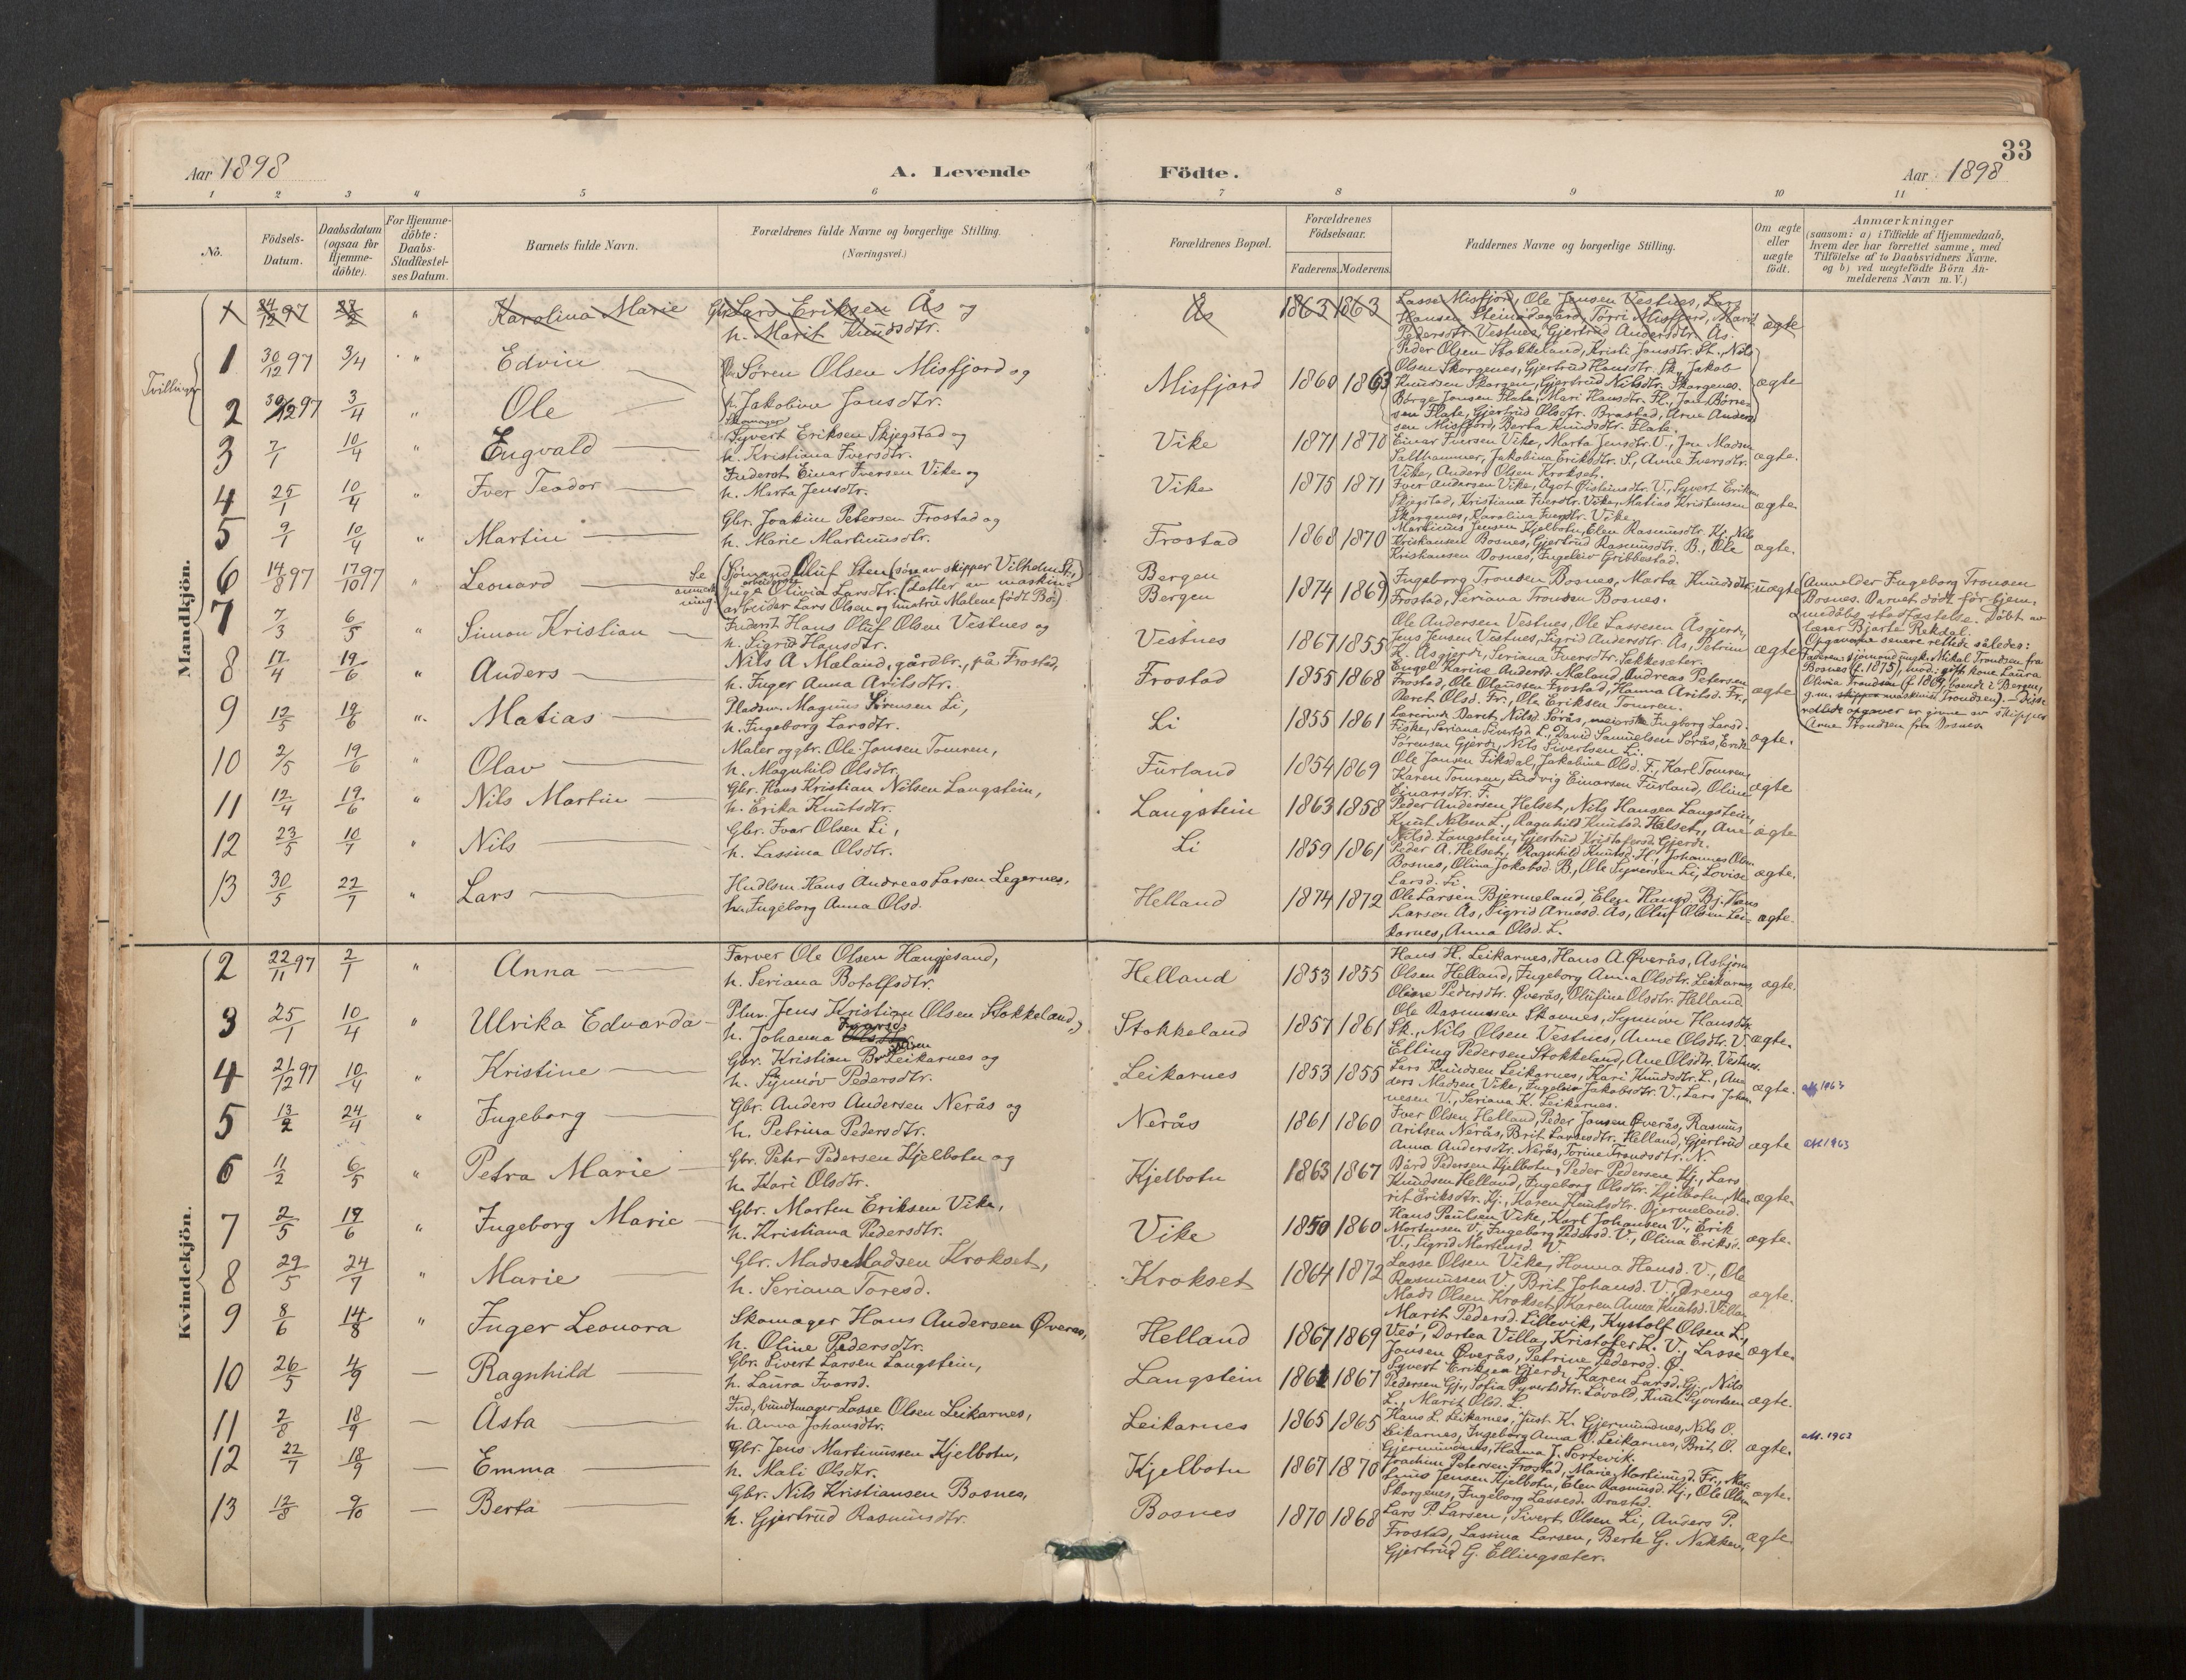 33
Aar 1898
A. Levende
Födte.
Aar 1898
1 2 3 4 5 6 7 8 9 10 11
No.
Födsels-
Datum.
Daabsdatum
(ogsaa for
Hjemme-
döbte).
For Hjemme-
döbte:
Daabs-
Stadfæstel-
ses Datum.
Barnets fulde Navn.
Forældrenes fulde Navne og borgerlige Stilling.
(Næringsvei.)
Forældrenes Bopæl.
Forældrenes
Födselsaar.
Faderens. Moderens.
Faddernes Navne og borgerlige Stilling.
Om ægte
eller
uægte
födt.
Anmærkninger
(saasom: a) i Tilfælde af Hjemmedaab,
hvem der har forrettet samme, med
Tilföielse af to Daabsvidners Navne.
og b) ved uægtefödte Börn An-
melderens Navn m. V.)
Mandkjön.
Karolina Marie
Gbr. Lars Eriksen Ås og
h. Marit Knudsdtr.
Ås
1863 1863
Lasse Misfjord, Ole Jensen Vestnes, Lars
Pedersdtr. Vestnes, Gjertrud Andersdtr. Ås.
ægte
Tvillinger
1 30/12 97 3/4 " Edvin
Søren Olsen Misfjord og
Misfjord 1860 1863
Peder Olsen Stokkeland, Kristi Jonsdtr. St., Nils
Olsen Skorgenes, Gjertrud Hansdtr. Sk., Jakob
Knudsen Skorgen, Gjertrud Nilsdtr. Skorgenes.
ægte
2 30/12 97 3/4 " Ole
h. Jakobine Jonsdtr.
Børge Jonsen Flate, Mari Hansdtr. Fl., Jon Børre-
sen Flate, Gjertrud Olsdtr. Brastad, Arne Ander-
sen Misfjord, Berta Knudsdtr. Flate.
3 7/1 10/4 " Engvald
Skomager
Syvert Eriksen Skjegstad og
h. Kristiana Iversdtr.
Vike 1871 1870
Einar Iversen Vike, Marta Jensdtr. V., Jon Madsen
Salthammer, Jakobina Eriksdtr. S., Anne Iversdtr.
Vike, Anders Olsen Krokset.
ægte.
4 25/1 10/4 " Iver Teodor
Inderst Einar Iversen Vike og
h. Marta Jensdtr.
Vike 1875 1871
Iver Andersen Vike, Agot Øisteinsdtr. V., Syvert Eriksen
Skjegstad, Kristiana Iversdtr. Vike, Matias Kristensen
Skorgenes, Karolina Iversdtr. Vike
ægte.
5 9/1 10/4 " Martin
Gbr. Joakim Petersen Frostad og
h. Marie Martinusdtr.
Frostad 1868 1870
Martinus Jensen Kjelbotn, Elen Rasmusdtr. Kj., Nils
Kristiansen Bosnes, Gjertrud Rasmusdtr. B., Ole
Kristiansen Bosnes, Ingeleiv Gribbestad.
ægte.
6 14/8 97 17/10 97 Leonard
Se
anmerk-
ning
(Sømand Oluf Sten (søn av skipper Vilhelm St.,)
Olivia Larsdtr. (datter av maskin-
arbeider Lars Olsen og hustru Malene født Bö)
Bergen
Bergen
1874 1869
Ingeborg Tronsen Bosnes, Marta Knudsdtr.
Frostad, Seriana Tronsen Bosnes.
uægte
Anmelder Ingeborg Tronsen
Bosnes. Barnet dödt før hjem-
medåbs stadfæstelse. Döbt av
lærer Bjarte Rekdal.
Opgaverne senere rettede således:
Faderen: sjömand ungk. Mikal Trondsen fra
Bosnes (f. 1875), mod.: gift kone Laura
Olivia Trondsen (f. 1869, boende i Bergen,
g. m. skipper maskinist Trondsen). – Disse
rettede opgaver er givne av skipper
Arne Trondsen fra Bosnes
7 7/3 6/5 " Simon Kristian
Inderst Hans Oluf Olsen Vestnes og
h. Sigrid Hansdtr.
Vestnes 1867 1855
Ole Andersen Vestnes, Ole Lassesen Åsgjerde,
Jens Jensen Vestnes, Sigrid Andersdtr. Ås, Petrine
K. Åsgjerde, Seriana Iversdtr. Sakkesæter.
ægte
8 17/4 19/6 " Anders
Nils A Mæland, gårdbr., på Frostad,
h. Inger Anna Aritsdtr.
Frostad 1855 1868
Engel Karine Andersd. Mæland, Andreas Petersen
Frostad, Ole Olaussen Frostad, Hanna Aritsd. Fr.,
Beret Olsd. Fr., Ole Eriksen Tomren.
ægte
9 12/5 19/6 " Matias
Pladsm. Magnus Sörensen Li,
h. Ingeborg Larsdtr.
Li 1855 1861
Fiske, Seriana Sivertsd. L., David Samuelsen Sørås, Erik
Sørensen Gjerde, Nils Sivertsen Li.
ægte.
10 2/5 19/6 " Olav
Maler og gbr. Ole Jonsen Tomren,
h. Magnhild Olsdtr.
Furland 1854 1869
Ole Jonsen Fiksdal, Jakobine Olsd. F., Karl Tomren,
Karen Tomren, Ludvig Einarsen Furland, Oline
Einarsdtr. F.
ægte
11 12/4 19/6 " Nils Martin
Gbr. Hans Kristian Nilsen Langstein,
h. Erika Knutsdtr.
Langstein 1863 1858
Peder Andersen Helset, Nils Hansen Langstein,
Knut Nilsen L., Ragnhild Knutsd. Helset, Ane
Nilsd. Langstein, Gjertrud Kristofersd. Gjerde.
ægte
12 23/5 10/7 " Nils
Gbr. Ivar Olsen Li,
h. Lassina Olsdtr.
Li 1859 1861
Peder A. Helset, Ragnhild Knutsd. H., Johannes Olsen
Bosnes, Olina Jakobsd. B., Ole Syversen Li, Lovise
Larsd. Li.
ægte.
13 30/5 22/7 " Lars
Hndlsm. Hans Andreas Larsen Legernes,
h. Ingeborg Anna Olsd.
Helland 1874 1872
Ole Larsen Bjermeland, Elen Hansd. Bj., Hans
Larsen Ås, Sigrid Arnesd. Ås, Oluf Olsen Lei-
karnes, Anna Olsd. L.
ægte.
Kvindekjön.
2 22/11 97 2/1 " Anna
Farver Ole Olsen Hangjesand,
h. Seriana Botolfsdtr.
Helland 1853 1855
Hans H. Leikarnes, Hans A. Øverås, Asbjørn
Olsen Helland, Ingeborg Anna Olsdtr. Leikarnes,
Oline Pedersdtr. Øverås, Olufine Olsdtr. Helland.
ægte.
3 25/1 10/4 " Ulrika Edvarda
Plm. Jens Kristian Olsen Stokkeland,
h. Johanna Ivarsd.
Stokkeland 1857 1861
Ole Rasmussen Skavnes, Synnöve Hansdtr.
Sk., Nils Olsen Vestnes, Anne Olsdtr. V.
Elling Pedersen Stokkeland, Ane Olsdtr. Vestnes.
ægte.
4 21/12 97 10/4 " Kristine
Gbr. Kristian Leikarnes og
h. Synnöv Pedersdtr.
Leikarnes 1853 1855
Lars Knudsen Leikarnes, Kari Knudsdtr. L., An-
ders Madsen Vike, Ingeleiv Jakobsdtr. V., Lars Johan-
nesen V., Seriana K. Leikarnes.
ægte.
5 13/2 24/4 " Ingeborg
Gbr. Anders Andersen Nerås og
h. Petrina Pedersdtr.
Nerås 1861 1860
Iver Olsen Helland, Peder Jonsen Øverås, Rasmus
Aritsen Nerås, Brit Larsesdtr. Helland, Gjertrud
Anna Andersdtr. Nerås, Torine Trondsdtr. N.
ægte
6 11/2 6/5 " Petra Marie
Gbr. Peter Pedersen Kjelbotn og
h. Kari Olsdtr.
Kjelbotn 1863 1867
Bård Pedersen Kjelbotn, Peder Pedersen Kj., Lars
Knudsen Helland, Ingeborg Olsdtr. Kjelbotn, Ma-
rit Eriksdtr. Kj., Karen Knutsdtr. Bjermeland.
ægte.
7 2/5 19/6 " Ingeborg Marie
Gbr. Morten Eriksen Vike,
h. Kristiana Pedersdtr.
Vike 1850 1860
Hans Paulsen Vike, Karl Johansen V., Erik
Mortensen V., Ingeborg Pedersd. V., Olina Eriksd.
V., Sigrid Martinsd. V.
ægte.
8 29/5 24/7 " Marie
Gbr. Mads Madsen Krokset,
h. Seriana Toresd.
Krokset 1864 1872
Lasse Olsen Vike, Hanna Hansd. V., Ole
Rasmussen V., Brit Johansd. V., Dreng
Mads Olsen Krokset, Karen Anna Knutsd. Villa.
ægte.
9 8/6 14/8 " Inger Leonora
Skomager Hans Andersen Øverås,
h. Oline Pedersdtr.
Helland 1867 1869
Marit Pedersd. Lillevik, Kystolf Olsen L.,
Veö, Dortea Villa, Kristofer K. V., Lasse
Jonsen Øverås, Petrine Pedersd. Ø.
ægte.
10 26/5 4/9 — Ragnhild
Gbr. Sivert Larsen Langstein,
h. Laura Ivarsd.
Langstein 1861 1867
Syvert Eriksen Gjerde, Karen Larsd. Gj., Nils
Pedersen Gj., Sofia Syvertsdtr. Løvold, Knut Syvertsen
L., Marit Olsd. L.
ægte.
11 2/8 18/9 — Åsta
Ind., bundtmager Lasse Olsen Leikarnes,
h. Anna Johansdtr.
Leikarnes 1865 1865
Hans L. Leikarnes, Just. K. Gjermundnes, Nils O.
Leikarnes, Ingeborg Anna O. Leikarnes, Brit O.
Gjermundnes, Hanna J. Sortevik.
ægte.
12 22/7 18/9 — Emma
Gbr. Jens Martinussen Kjelbotn,
h. Mali Olsdtr.
Kjelbotn 1867 1870
Joachim Petersen Frostad, Marie Martinusd. Fr., Mar-
tinus Jensen Kjelbotn, Elen Rasmusd. Kj., Ole Olsen
Skorgenes, Ingeborg Lassesd. Brastad.
ægte.
13 12/8 9/10 — Berta
Gbr. Nils Kristiansen Bosnes,
h. Gjertrud Rasmusdtr.
Bosnes 1870 1868
Lars P. Larsen, Sivert Olsen Li, Anders P.
Frostad, Lassina Larsen, Berte G. Nakken,
Gjertrud G. Ellingsæter.
ægte.